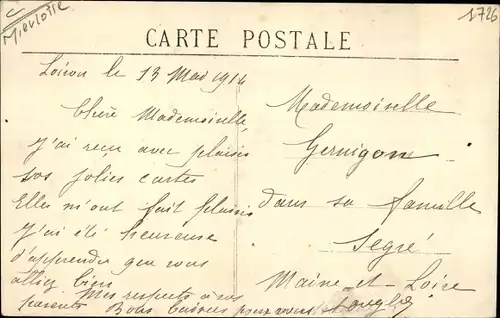 1726
CARTE POSTALE
Loiron le 13 Mai 1914
Chère Mademoiselle,
J'ai reçu avec plaisir
vos jolies cartes
Elles m'ont fait plaisir
J'ai été heureuse
d'apprendre que vous
alliez bien
Mes respects à vos
parents Bons baisers pour vous
Mademoiselle
Gernigon
dans sa famille
Segré
Maine-et-Loire